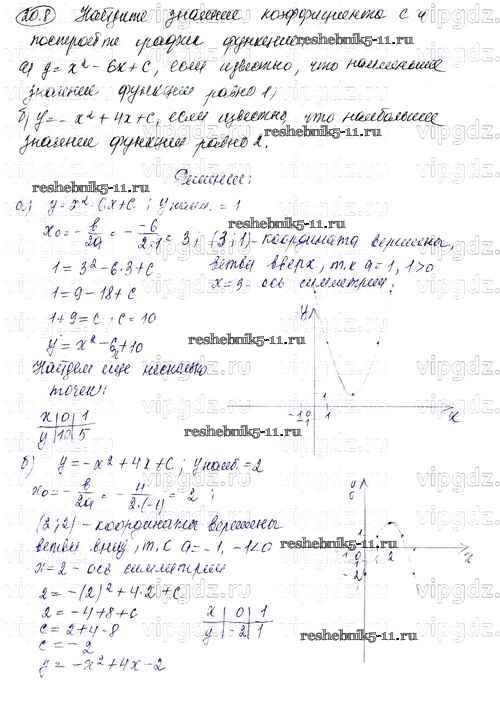 20.8 Найдите значение коэффициента с и
постройте график функции
а) y = x² - 6x + c, если известно, что наименьшее
значение функции равно 1;
б) y = - x² + 4x + c, если известно, что наибольшее
значение функции равно 2.
Решение:
reshebnik5-11.ru
а) y = x² - 6x + c ; y наим. = 1
x₀ = - в/2a = - -6/2·1 = 3; (3; 1) - координата вершины,
1 = 3² - 6·3 + c ветви вверх, т.к a = 1, 1>0
1 = 9 - 18 + c x = 3 - ось симметрии;
1 + 9 = c ; c = 10
reshebnik5-11.ru
y = x² - 6x + 10
Найдем еще несколько
точек:
x | 0 | 1
y | 10 | 5
reshebnik5-11.ru
y
-1 0 1 x
-1
1
б) y = -x² + 4x + c ; y наиб. = 2
x₀ = - в/2a = - 4/2·(-1) = 2 ;
(2; 2) - координаты вершины
ветви вниз, т.с a = -1, -1<0
reshebnik5-11.ru
x = 2 - ось симметрии
2 = -(2)² + 4·2 + c
2 = -4 + 8 + c
c = 2 + 4 - 8
c = -2
y = -x² + 4x - 2
x | 0 | 1
y | -2 | 1
reshebnik5-11.ru
1
-1 2 x
-2
vipgdz.ru